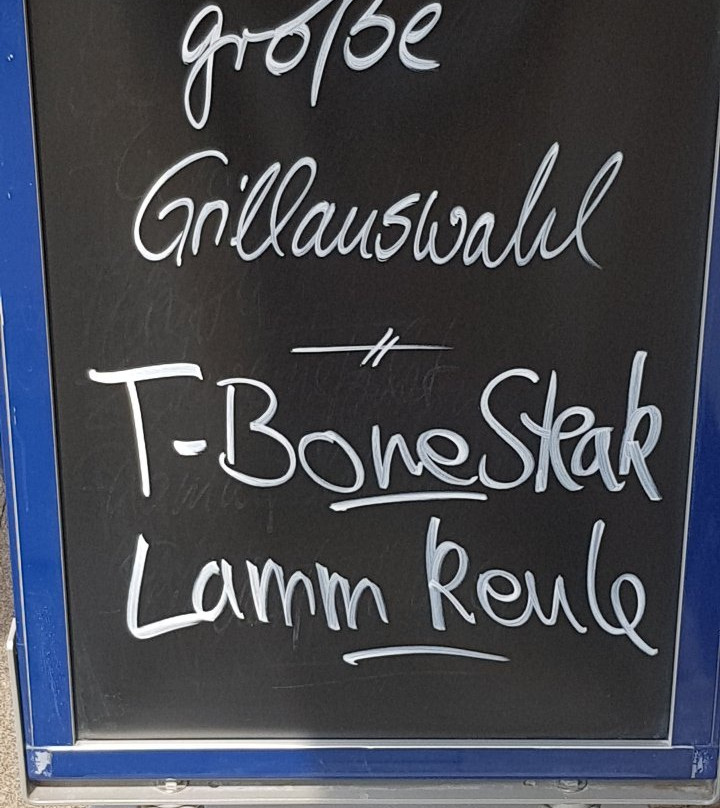 große
Grillauswahl
T-Bone Steak
Lamm keule